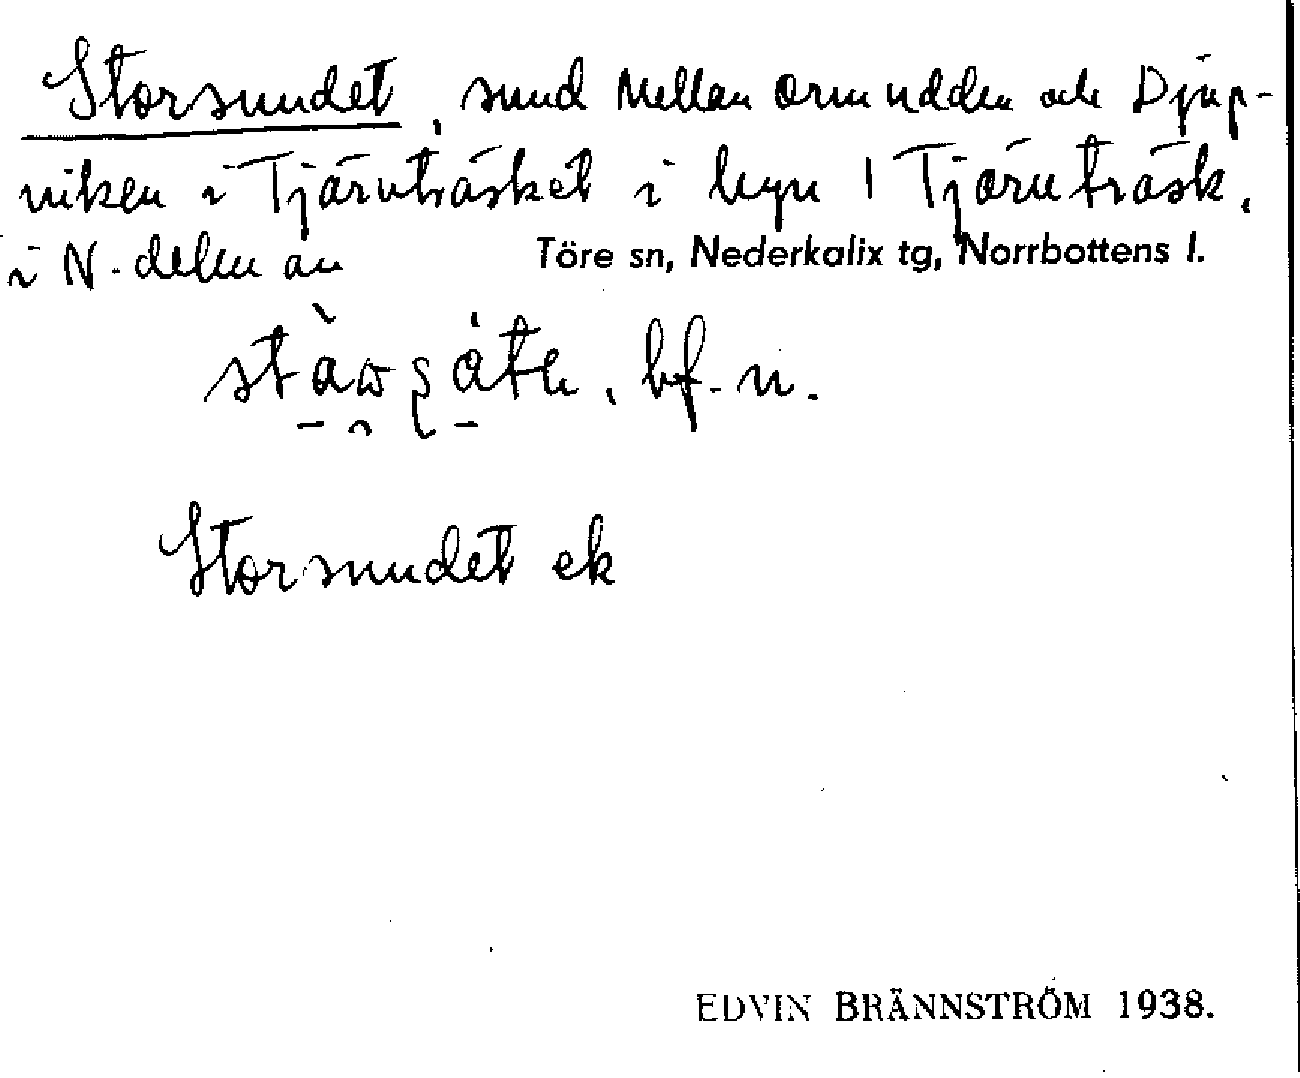 Storsundet, sund mellan Ormudden och Djup-
viken i Tjärnträsket i byn 1 Tjärnträsk.
i N. delen av Töre sn, Nederkalix tg, Norrbottens l.
bf. n.
Storsundet ek
EDVIN BRÄNNSTRÖM 1938.